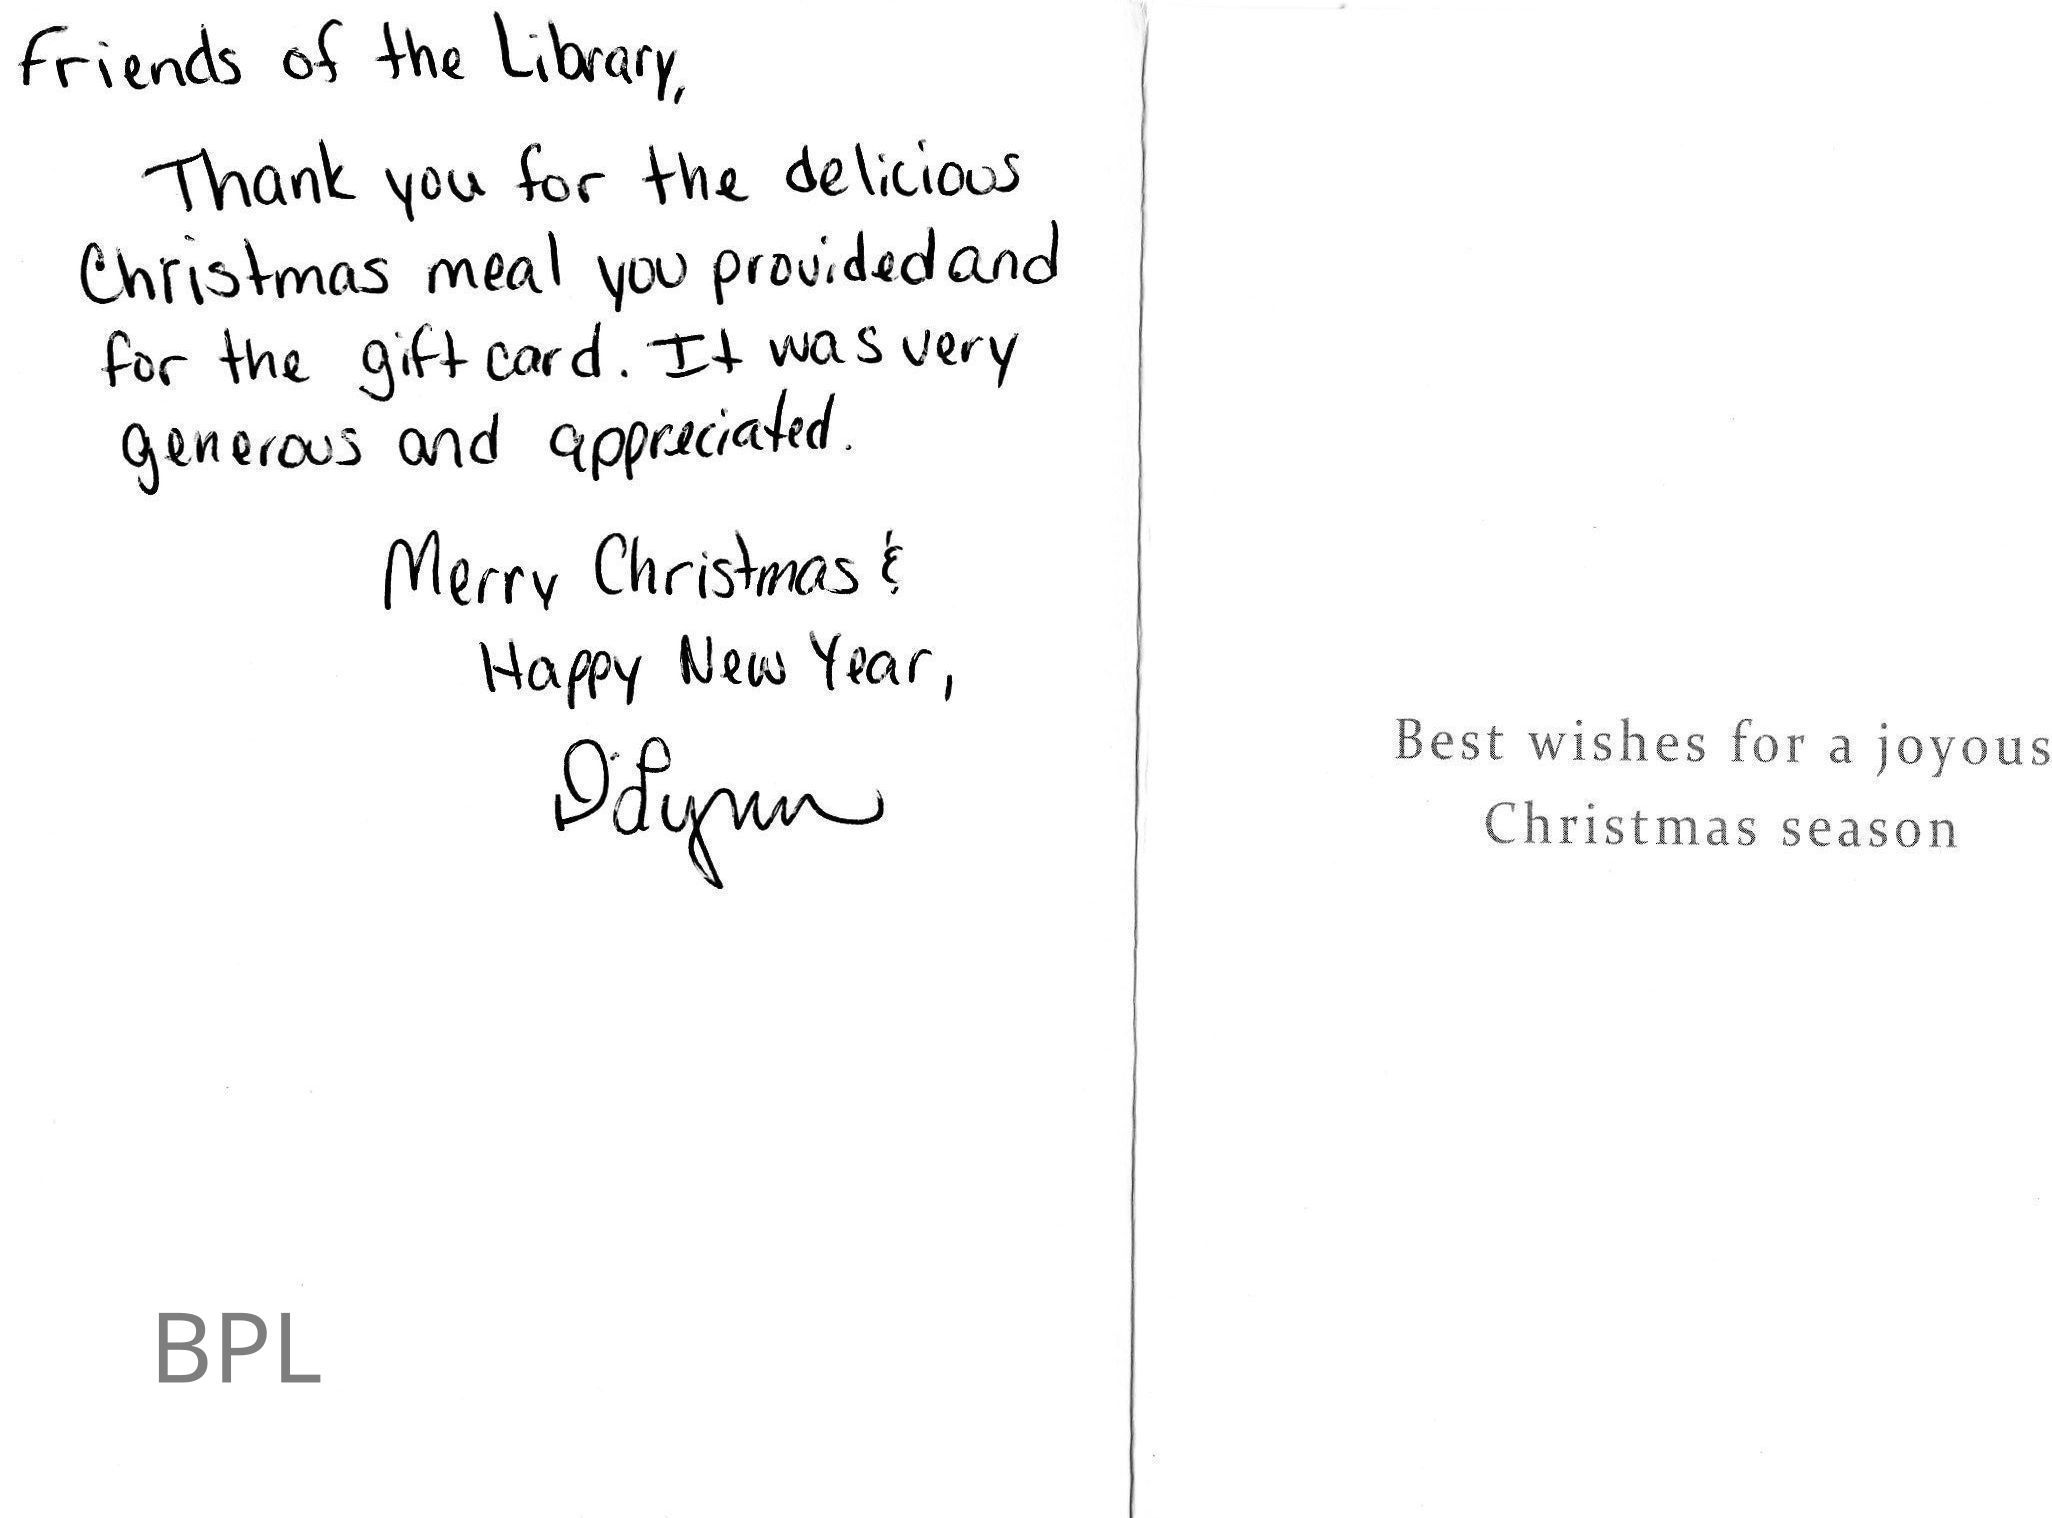 Friends of the Library,
Thank you for the delicious
Christmas meal you provided and
for the gift card. It was very
generous and appreciated.
Merry Christmas &
Happy New Year,
D'Lynn
BPL
Best wishes for a joyous
Christmas season